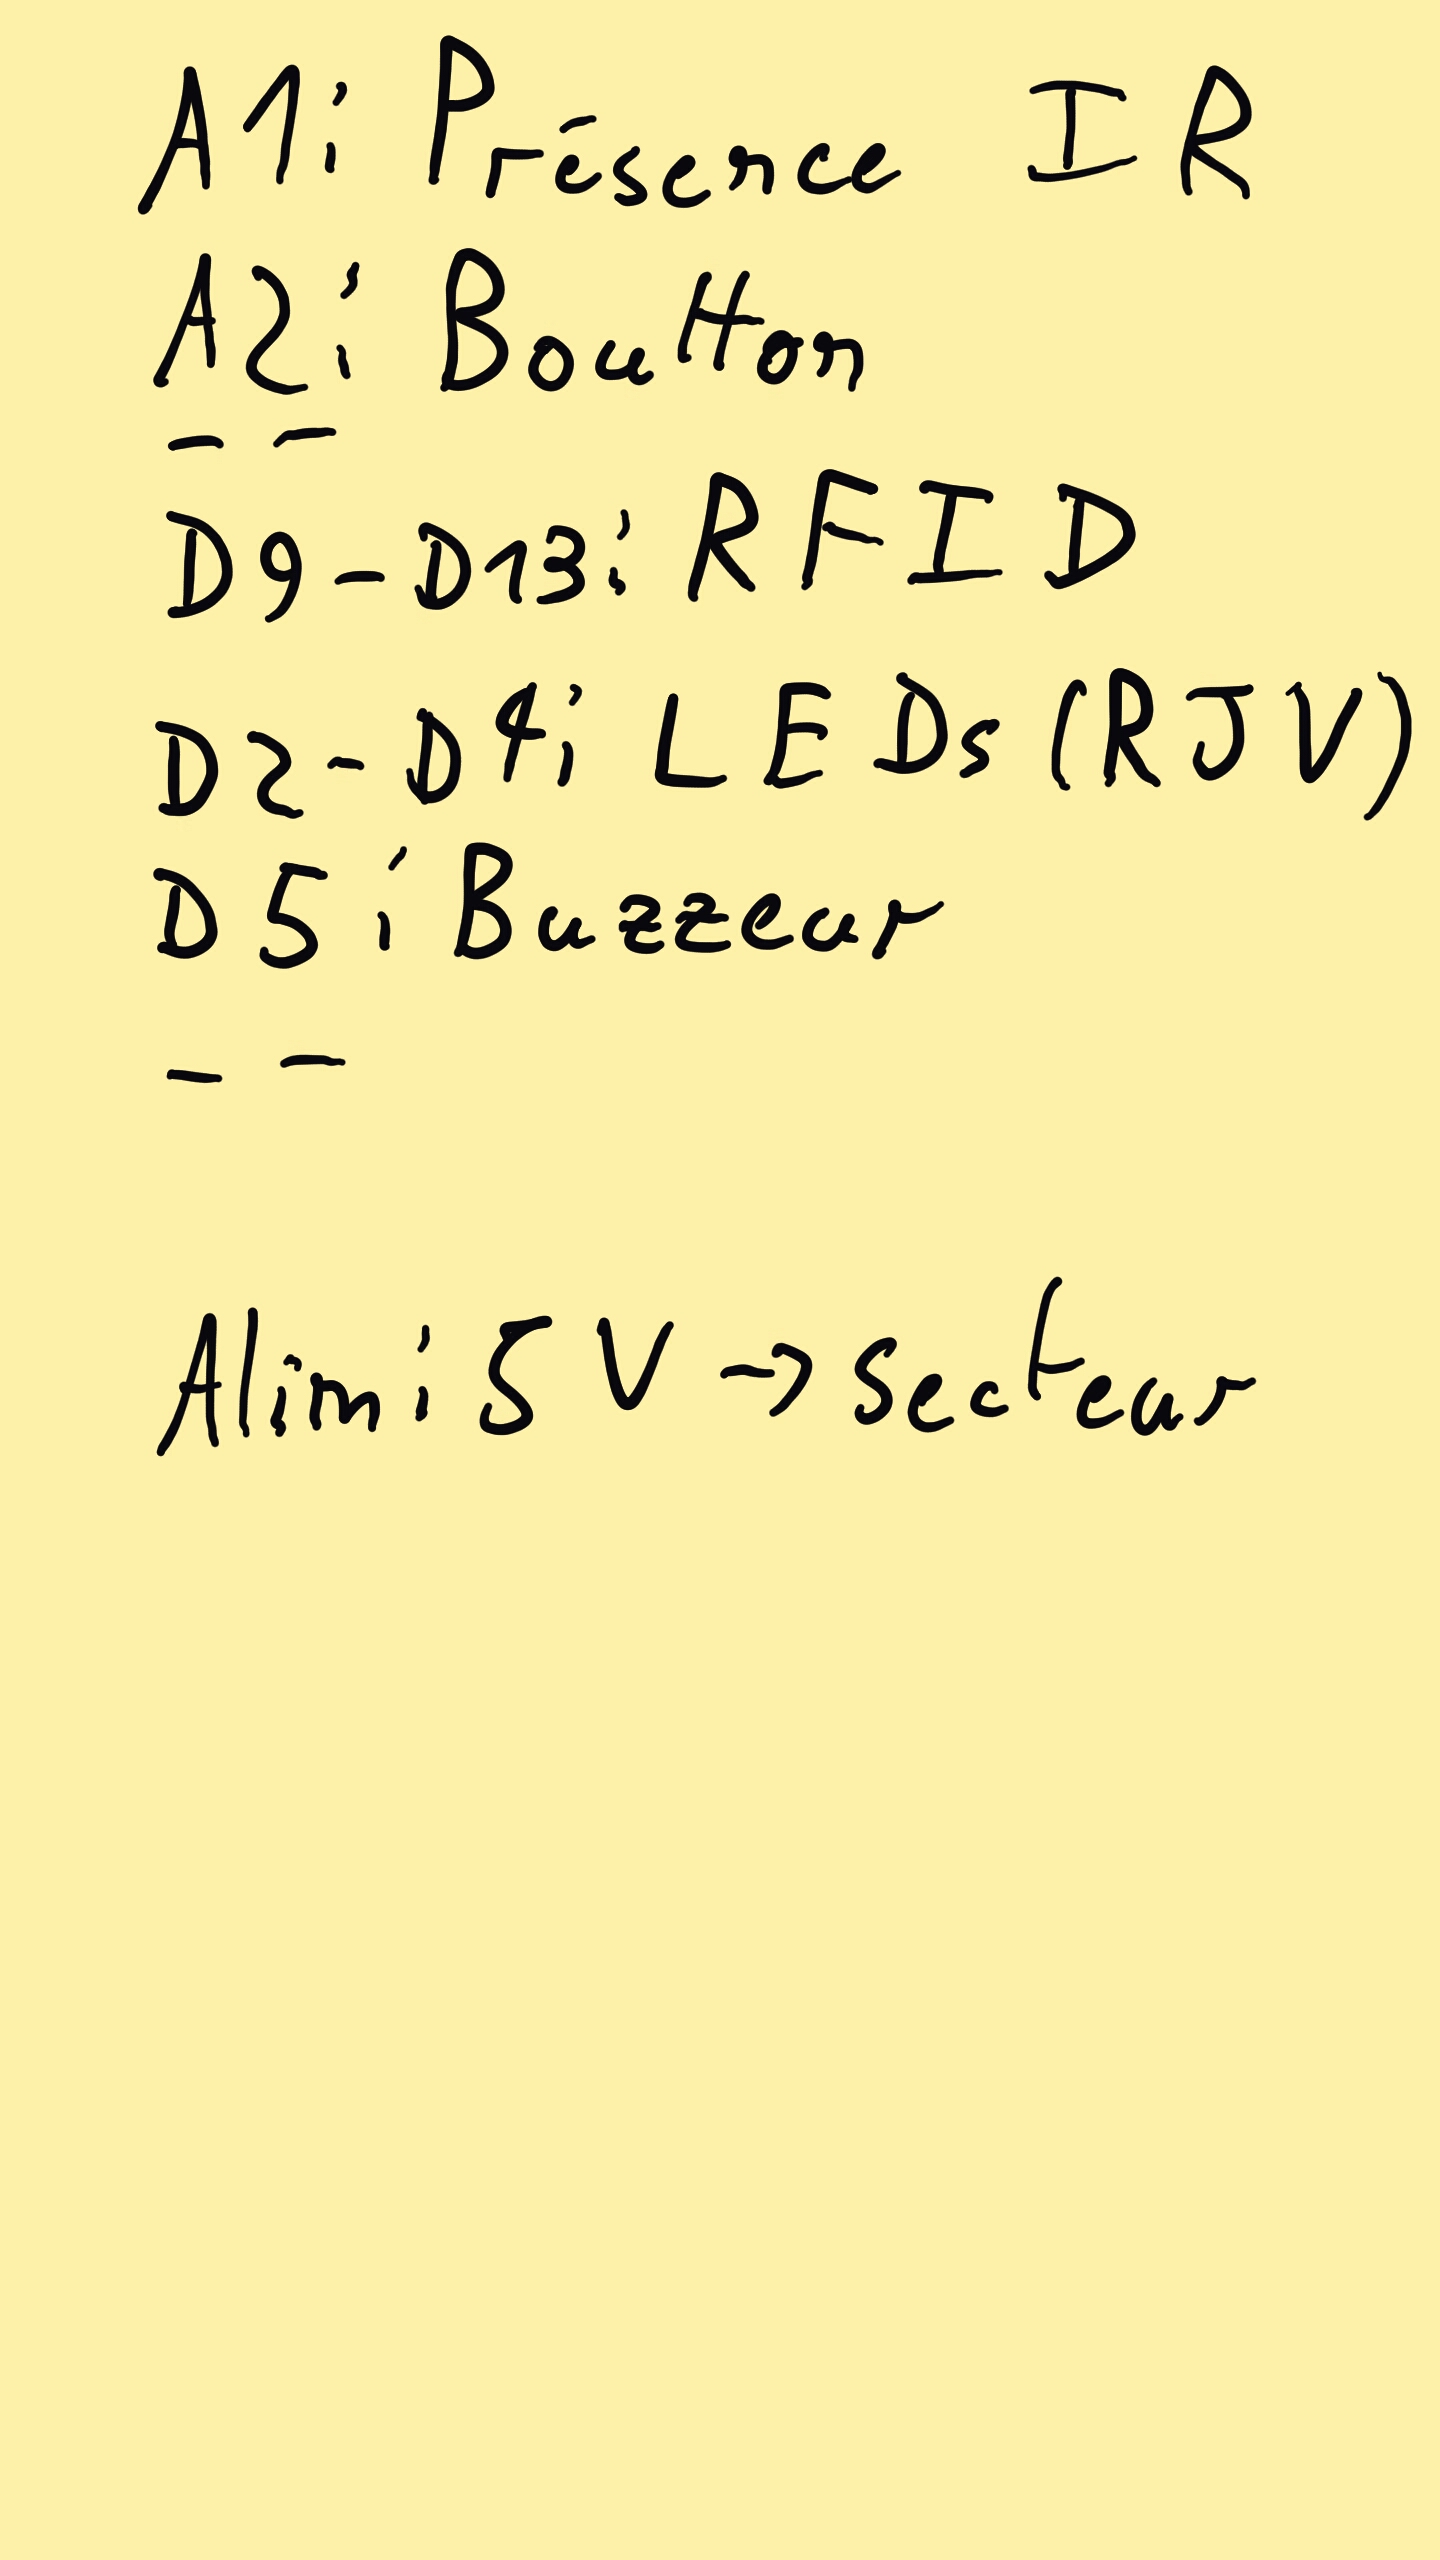 A1: Présence IR
A2: Boutton
- -
D9-D13: RFID
D2-D4: LEDs (RJV)
D5: Buzzeur
- -
Alim: 5V -> secteur